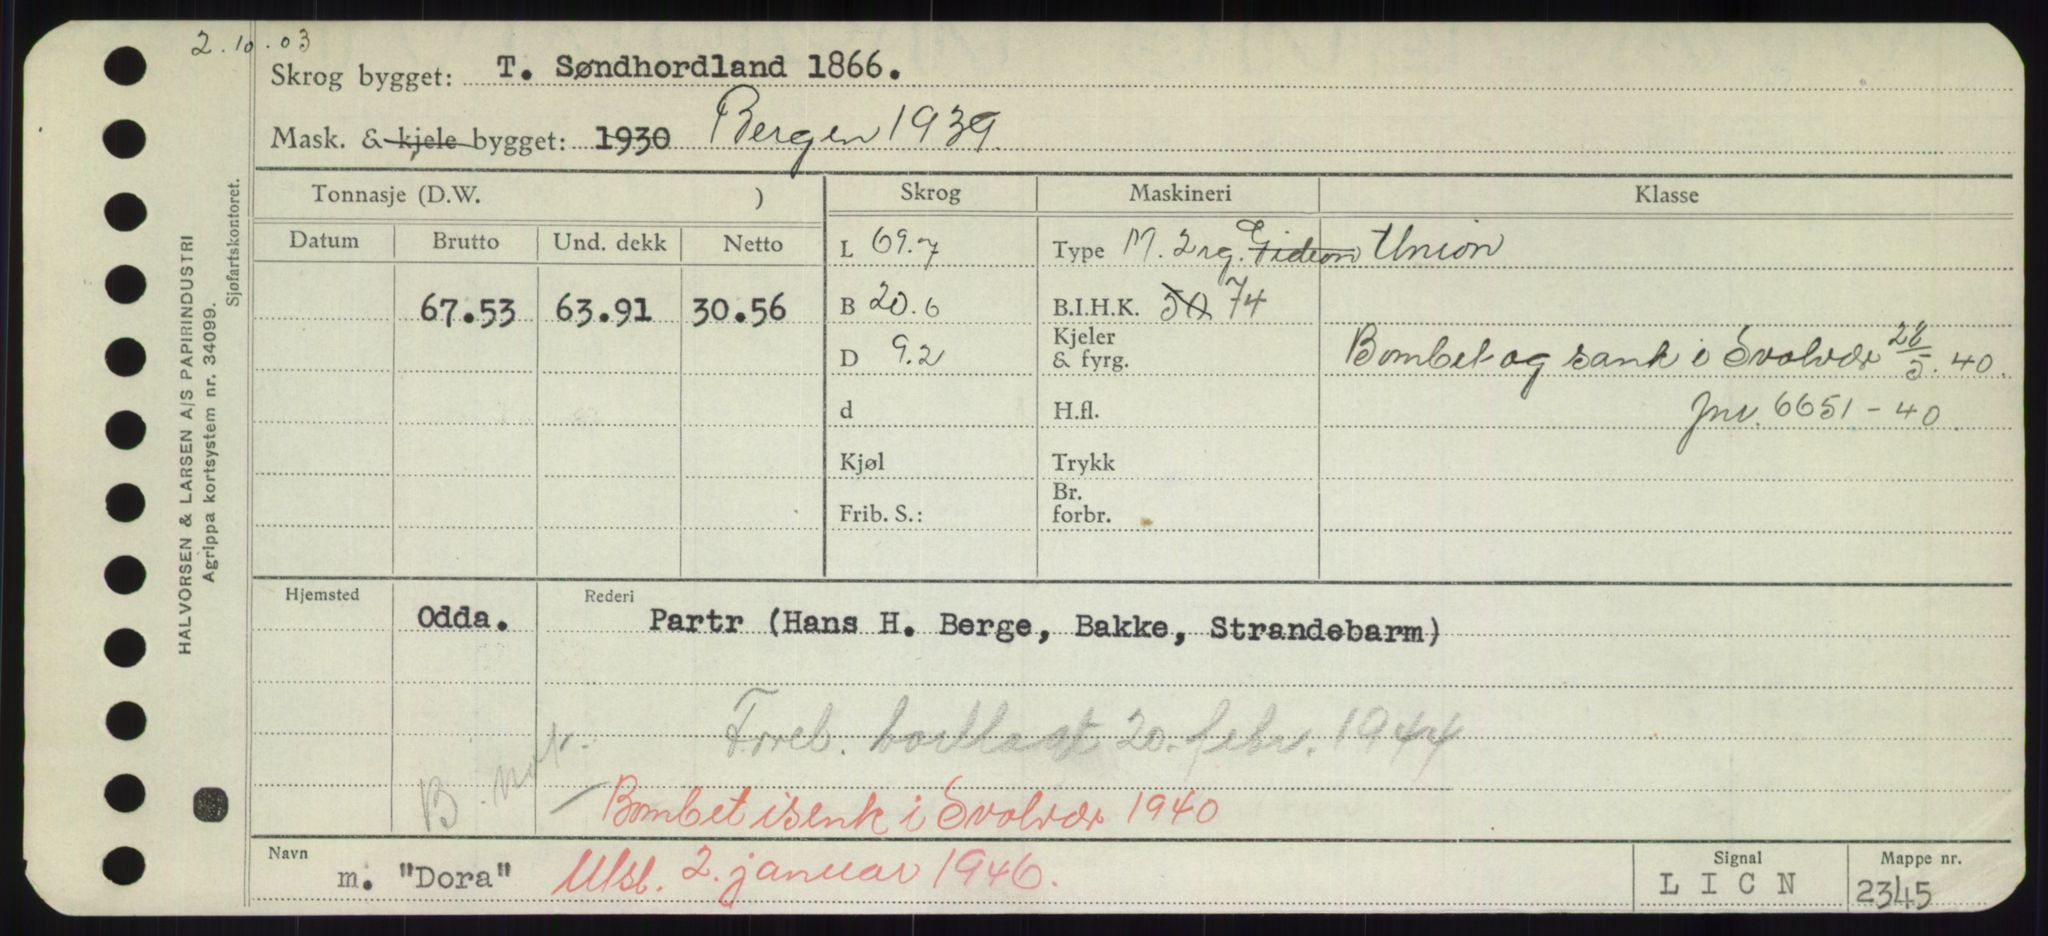 2.10.03
Skrog bygget: T. Søndhordland 1866.
Mask. & kjele bygget: 1930 Bergen 1939.
Tonnasje (D.W. )
Skrog
Maskineri
Klasse
Datum
Brutto
Und. dekk
Netto
L 69.7
Type M. 2 Gideon Union
67.53
63.91
30.56
B 20.6
B.I.H.K. 50 74
D 9.2
Kjeler
& fyrg.
Bombet og sank i Svolvær 28/5.40.
d
H.fl.
Jnv. 6651-40.
Kjøl
Trykk
Frib. S.:
Br.
forbr.
Hjemsted
Odda.
Rederi
Partr (Hans H. Berge, Bakke, Strandebarm)
20. febr. 1944
B. notr.
Bombet i senk i Svolvær 1940
Navn
m. "Dora"
Utsl. 2. januar 1946.
Signal
L I C N
Mappe nr.
2345
HALVORSEN & LARSEN A/S PAPIRINDUSTRI
Agrippa kortsystem nr. 34099.
Sjøfartskontoret.